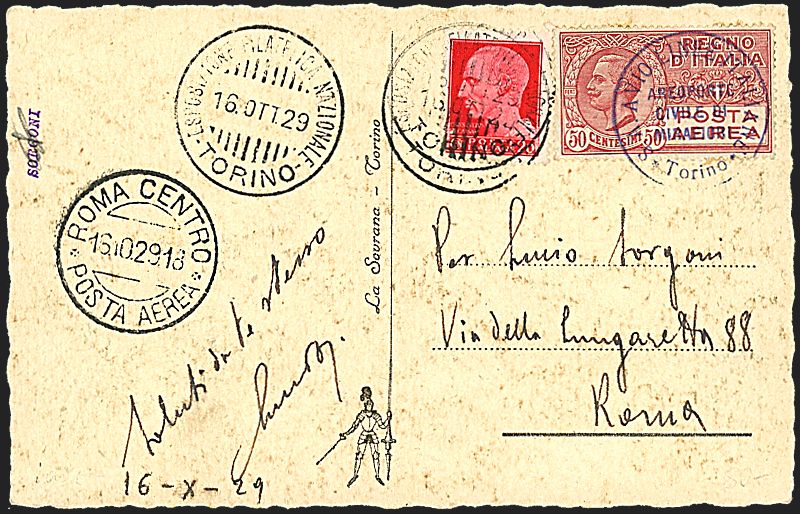 SORGONI
ESPOSIZIONE FILATELICA NAZIONALE
16.OTT.29
TORINO
ROMA CENTRO
16.10.29.18
POSTA AEREA
Saluti da te stesso
16-X-29
La Sovrana - Torino
16.OTT.29
TORINO
REGNO
D'ITALIA
POSTA
AEREA
50 CENTESIMI 50
AEROPORTO
CIVILE DI
MIRAFIORI
Torino
Per Lucio Sorgoni
Via della Lungaretta 88
Roma